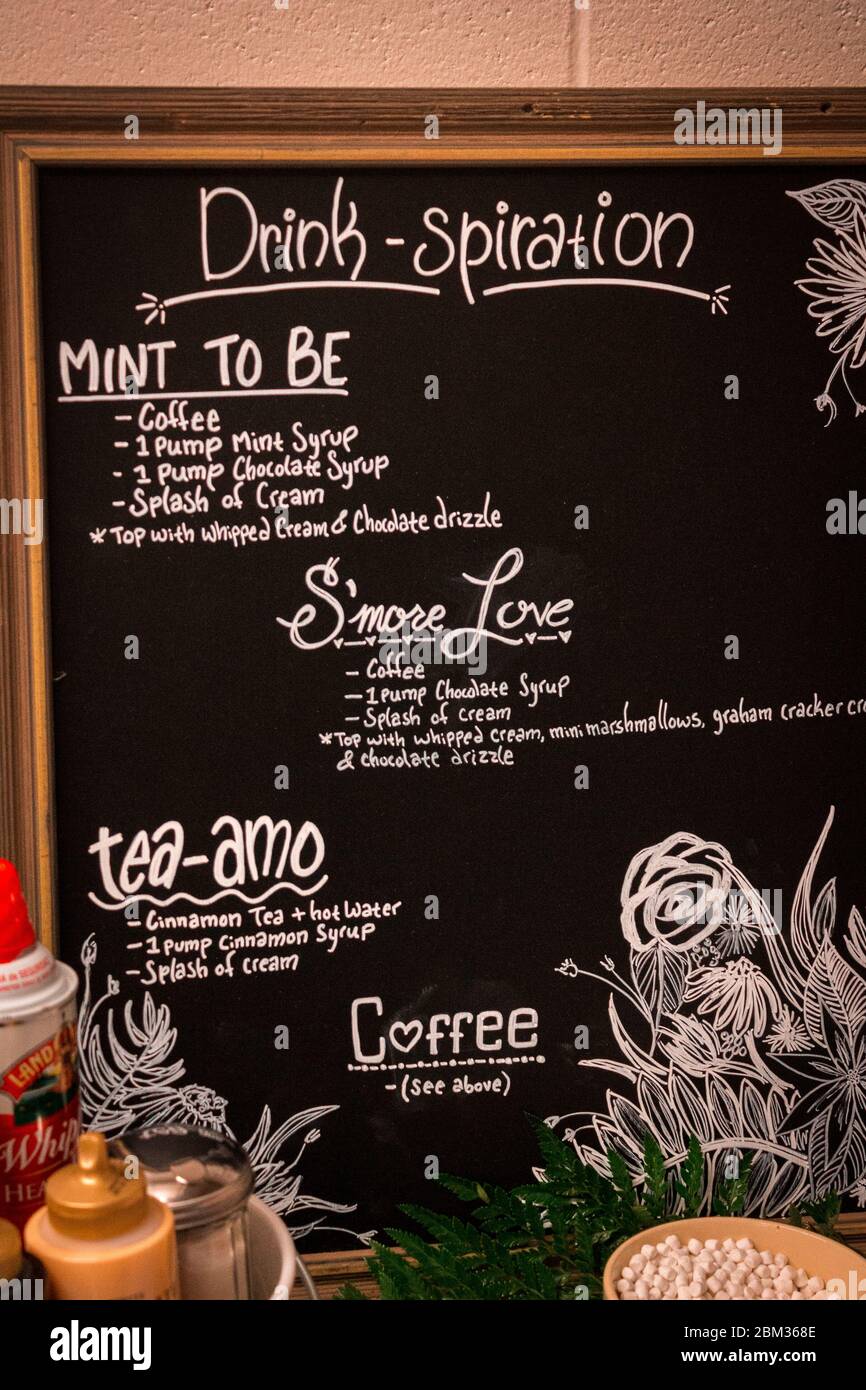 Drink-spiration
MINT TO BE
- Coffee
- 1 Pump Mint Syrup
- 1 Pump Chocolate Syrup
- Splash of Cream
* Top with whipped Cream & Chocolate drizzle
S'more Love
- Coffee
- 1 Pump Chocolate Syrup
- Splash of cream
* Top with whipped cream, mini marshmallows, graham cracker
& chocolate drizzle
tea-amo
- Cinnamon Tea + hot water
- 1 pump Cinnamon Syrup
- Splash of cream
Coffee
- (see above)
LAND
Whip
HEA
alamy
Image ID: 2BM368E
www.alamy.com